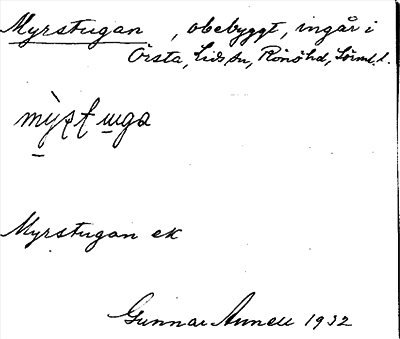 Myrstugan, obebyggt, ingår i
Örsta, Lids sn, Rönö hd, Sörml. l.
Myrstugan ek
Gunnar Annell 1932